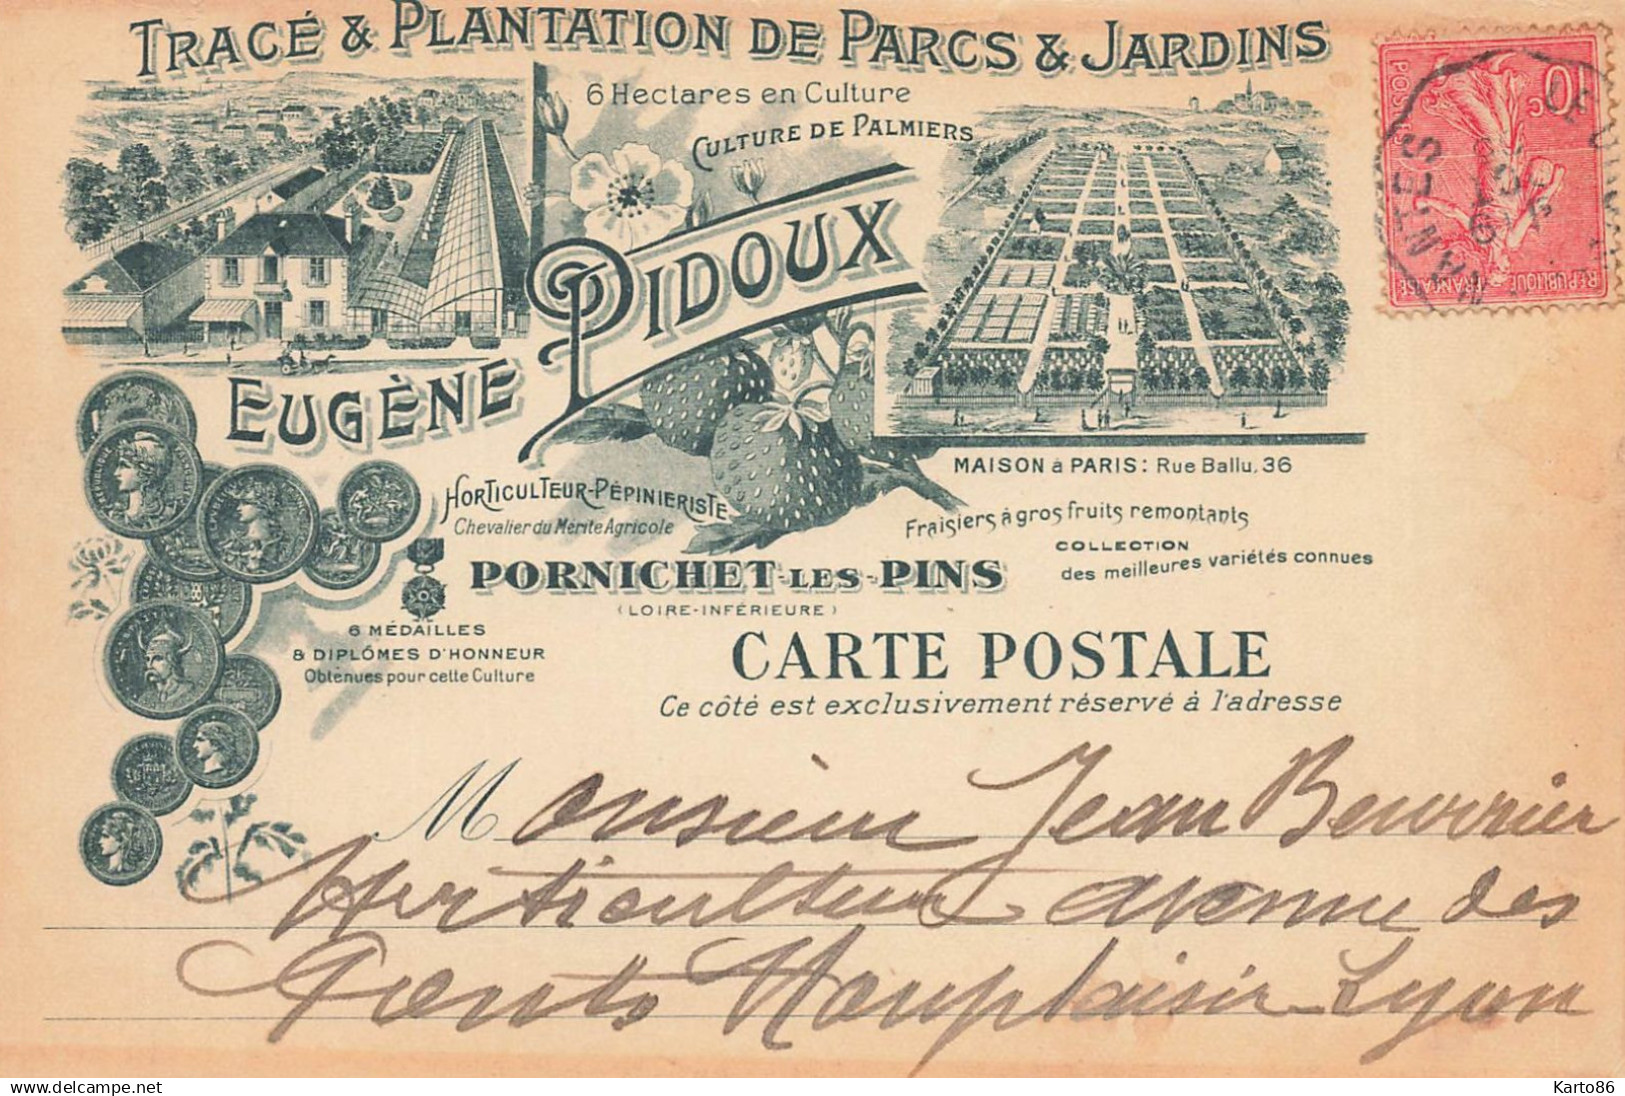 TRACÉ & PLANTATION DE PARCS & JARDINS
6 Hectares en Culture
CULTURE DE PALMIERS
EUGÈNE PIDOUX
MAISON à PARIS: Rue Ballu, 36
HORTICULTEUR-PÉPINIERISTE
Chevalier du Mérite Agricole
Fraisiers à gros fruits remontants
COLLECTION
des meilleures variétés connues
PORNICHET-LES-PINS
(LOIRE-INFÉRIEURE)
6 MÉDAILLES
& DIPLÔMES D'HONNEUR
Obtenues pour cette Culture
CARTE POSTALE
Ce côté est exclusivement réservé à l'adresse
10 c
POSTES
REPUBLIQUE FRANÇAISE
NANTES
Monsieur Jean Beurrier
Horticulteur avenue des
Ponts Monplaisir Lyon
www.delcampe.net
Karto86